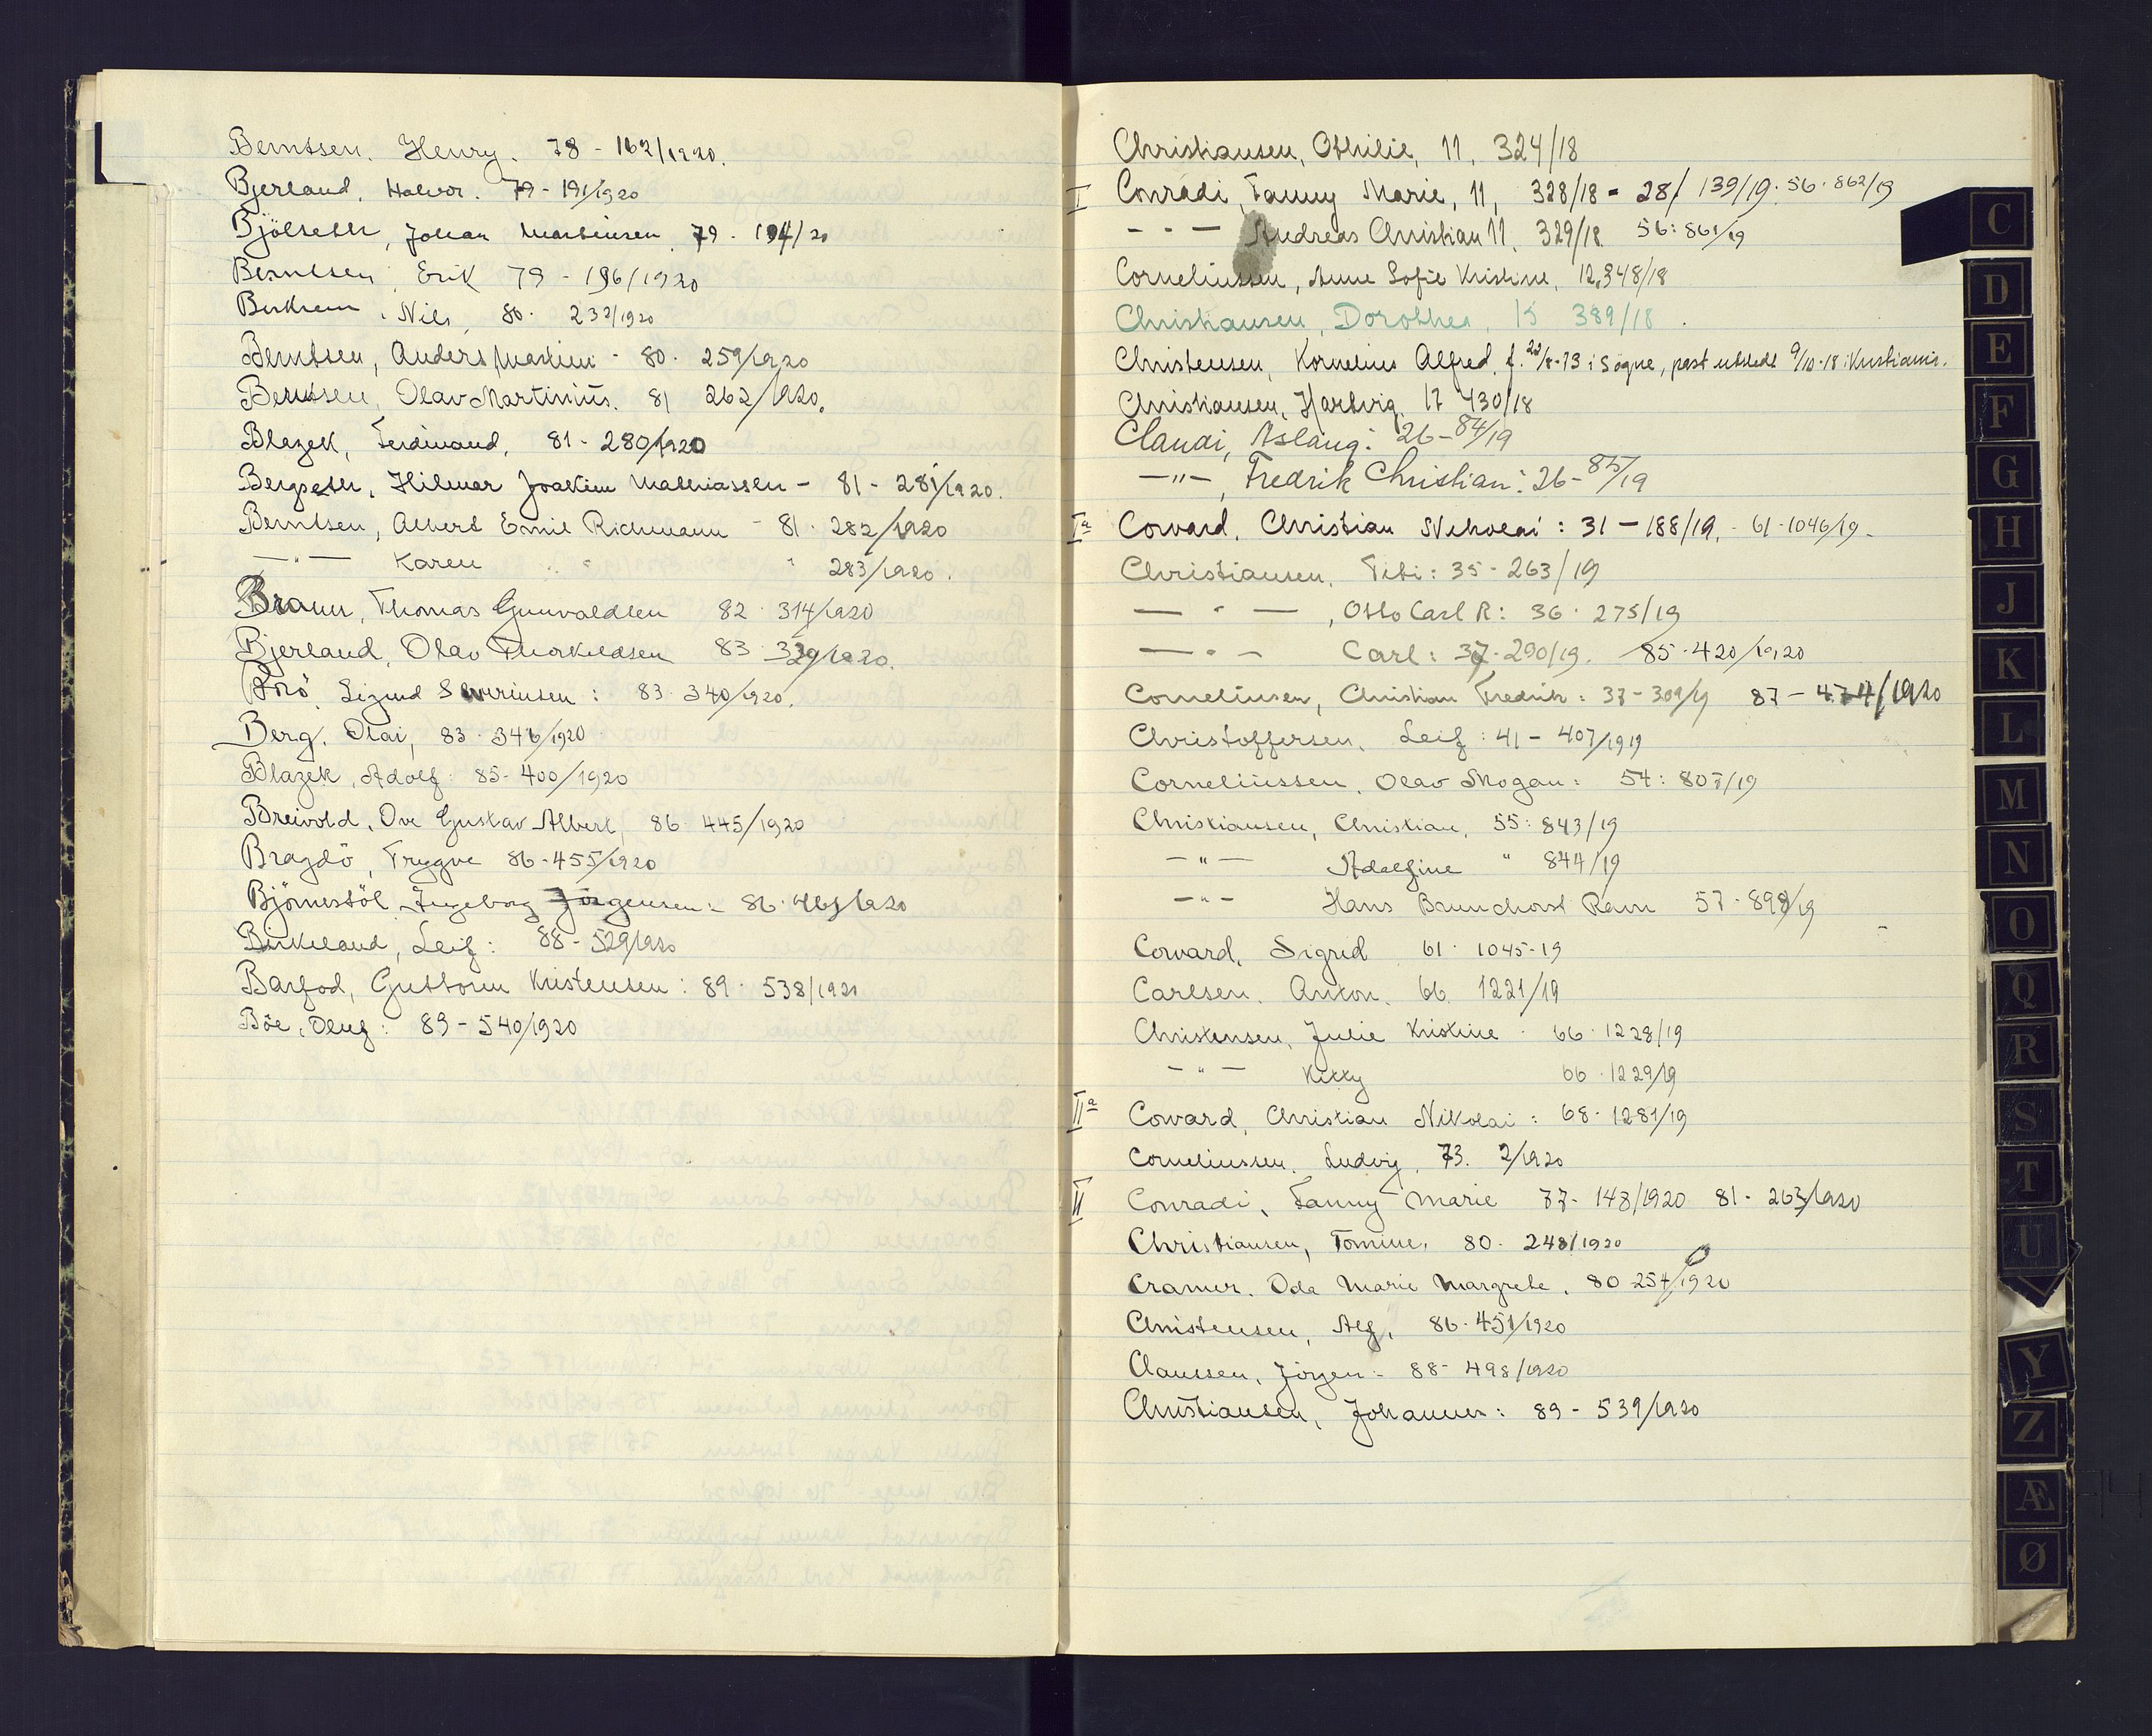 Berntsen. Henry. 78 - 162/1920.
Bjerland, Halvor. 79 - 191/1920
Bjölseth, Johan Martinsen 79 - 194/20
Berntsen, Erik 79 - 196/1920
Birkrem, Nils, 80. 232/1920
Berntsen, Anders Martin - 80. 259/1920
Berntsen, Olav Martinius. 81 262/1920.
Blazek, Ferdinand, 81 - 280/1920
Bergseth, Hilmar Joakim Mathiassen - 81 - 281/1920.
Berntsen, Albert Emil Richmann - 81. 282/1920
— " — Karen " " 283/1920.
Braun, Thomas Gunvaldsen 82. 314/1920
Bjerland, Olav Thorkildsen 83. 339/1920.
Sigurd Severinsen: 83. 340/1920.
Berg. Olai, 83. 346/1920
Blazek, Adolf: 85- 400/1920
Breivold, Ove Gustav Albert, 86 445/1920
Bragdö, Trygve 86-455/1920
Björnestöl Ingeborg Jörgensen: 86. 461/1920
Birkeland, Leif: 88 - 529/1920
Barfod, Guttorm Kristensen: 89. 538/1920
Böe, Oluf: 89 - 540/1920
Christiansen, Othilie, 11, 324/18
I Conradi, Fanny Marie, 11, 328/18 - 28/ 139/19. 56. 862/19
- " — Andreas Christian 11, 329/18 56: 861/19
Corneliussen, Anne Sofie Kristine, 12, 348/18
Christiansen, Dorothea, 15 389/18.
Christensen, Kornelius Alfred, f. 22/8-73 i Sögne, pass utstedt 9/10-18 i Kristiania.
Christiansen, Hartvig. 17 430/18
Claudi, Aslaug: 26-84/19
— " —, Fredrik Christian: 26-85/19
Iª Corvard, Christian Nikolai: 31 - 188/19. - 61-1046/19.
Christiansen, Titi: 35 - 263/19
— " —, Otto Carl R: 36. 275/19
— " — Carl: 37-290/19. 85-420/1920
Corneliusen, Christian Fredrik: 37-309/19 87 - 474/1920
Christoffersen, Leif: 41 - 407/1919
Corneliussen, Olav Mogan: 54: 807/19
Christiansen, Christian, 55: 843/19
— " — Adolfine " 844/19
- " - Hans Brunchorst Ravn 57-898/19
Corvard, Sigrid 61. 1045-19
Carlsen. Anton. 66. 1221/19
Christensen, Julie Kristine. 66. 1228/19
- " - Kitty 66. 1229/19
IIª Corvard, Christian Nikolai: 68. 1281/19
Corneliussen, Ludvig, 73. 2/1920
II Conradi, Fanny Marie 77- 148/1920 81- 263/1920
Christiansen, Tomine, 80. 248/1920
Cramer. Oda Marie Margrete, 80-254/1920
Christensen, Alf, 86. 451/1920
Claussen, Jörgen: 88- 498/1920
Christiansen, Johannes: 89 - 539/1920
C
D
E
F
G
H
J
K
L
M
N
O
Q
R
S
T
U
Y
Z
Æ
Ø